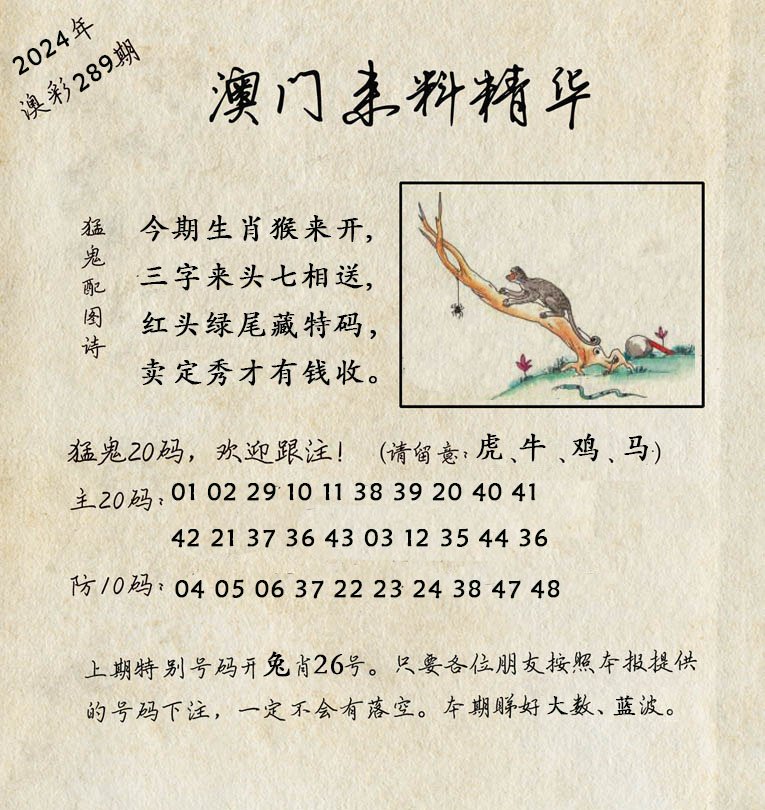 2024年
澳彩289期
澳门来料精华
猛鬼配图诗
今期生肖猴来开,
三字来头七相送,
红头绿尾藏特码,
卖定秀才有钱收。
猛鬼20码,欢迎跟注!(请留意:虎、牛、鸡、马)
主20码:01 02 29 10 11 38 39 20 40 41
42 21 37 36 43 03 12 35 44 36
防10码:04 05 06 37 22 23 24 38 47 48
上期特别号码开兔肖26号。只要各位朋友按照本报提供
的号码下注,一定不会有落空。本期睇好大数、蓝波。